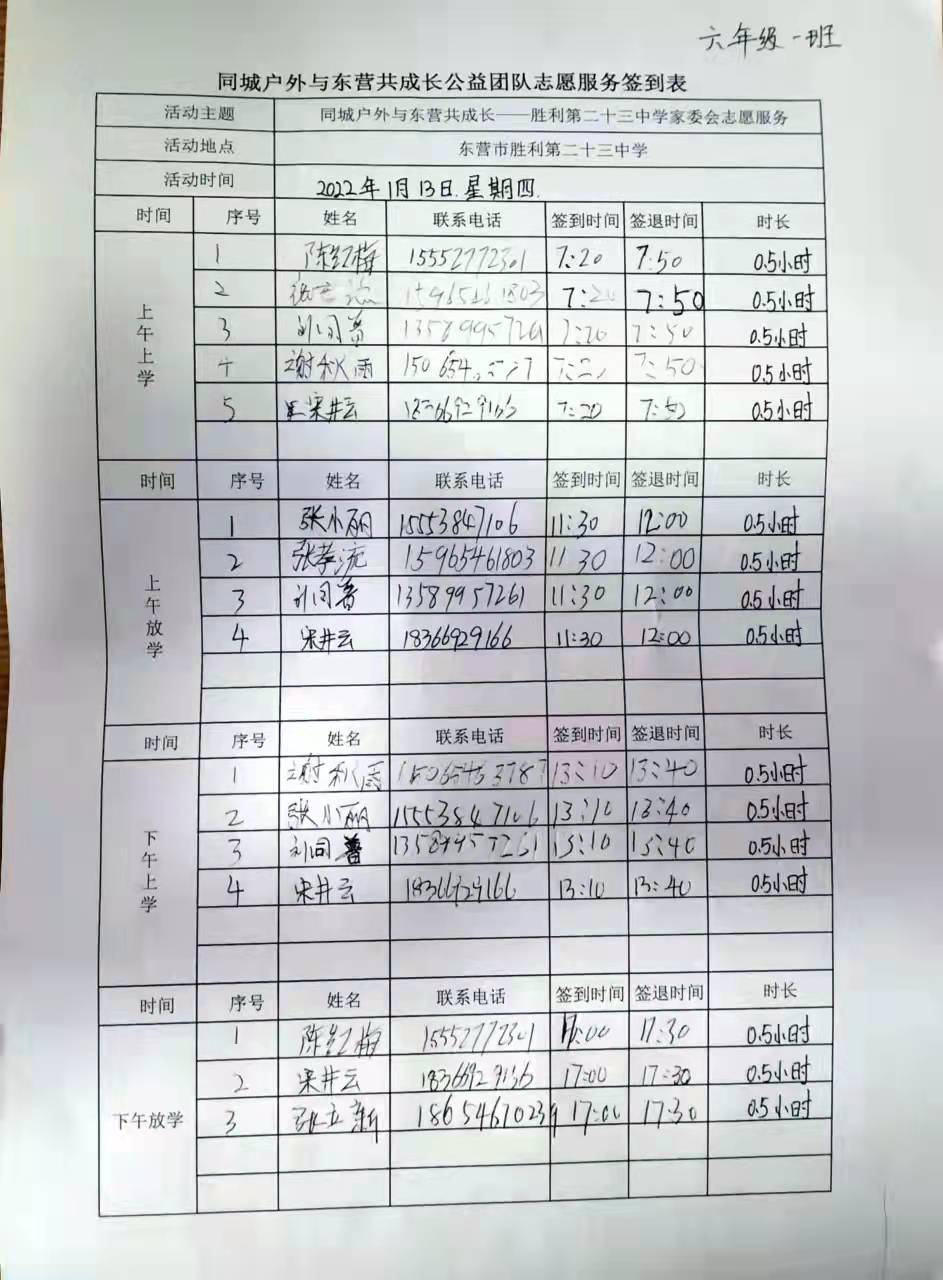 六年级一班
同城户外与东营共成长公益团队志愿服务签到表
活动主题 同城户外与东营共成长——胜利第二十三中学家委会志愿服务
活动地点 东营市胜利第二十三中学
活动时间 2022年1月13日.星期四.
时间 序号 姓名 联系电话 签到时间 签退时间 时长
上午上学
1 陈红梅 15552772301 7:20 7:50 0.5小时
2 7:20 7:50 0.5小时
3 刘同普 7:20 7:50 0.5小时
4 谢秋雨 7:50 0.5小时
5 宋井云 7:20 7:50 0.5小时
时间 序号 姓名 联系电话 签到时间 签退时间 时长
上午放学
1 张小丽 15553847106 11:30 12:00 0.5小时
2 张孝流 15965461803 11 30 12:00 0.5小时
3 刘同普 13589957261 11:30 12:00 0.5小时
4 宋井云 18366929166 11:30 12:00 0.5小时
时间 序号 姓名 联系电话 签到时间 签退时间 时长
下午上学
1 谢秋雨 13:10 13:40 0.5小时
2 张小丽 15553847106 13:10 13:40 0.5小时
3 刘同普 13589957261 13:10 13:40 0.5小时
4 宋井云 18366929166 13:10 13:40 0.5小时
时间 序号 姓名 联系电话 签到时间 签退时间 时长
下午放学
1 陈红梅 15552772301 17:00 17:30 0.5小时
2 宋井云 18366929166 17:00 17:30 0.5小时
3 张立新 18654670239 17:00 17:30 0.5小时